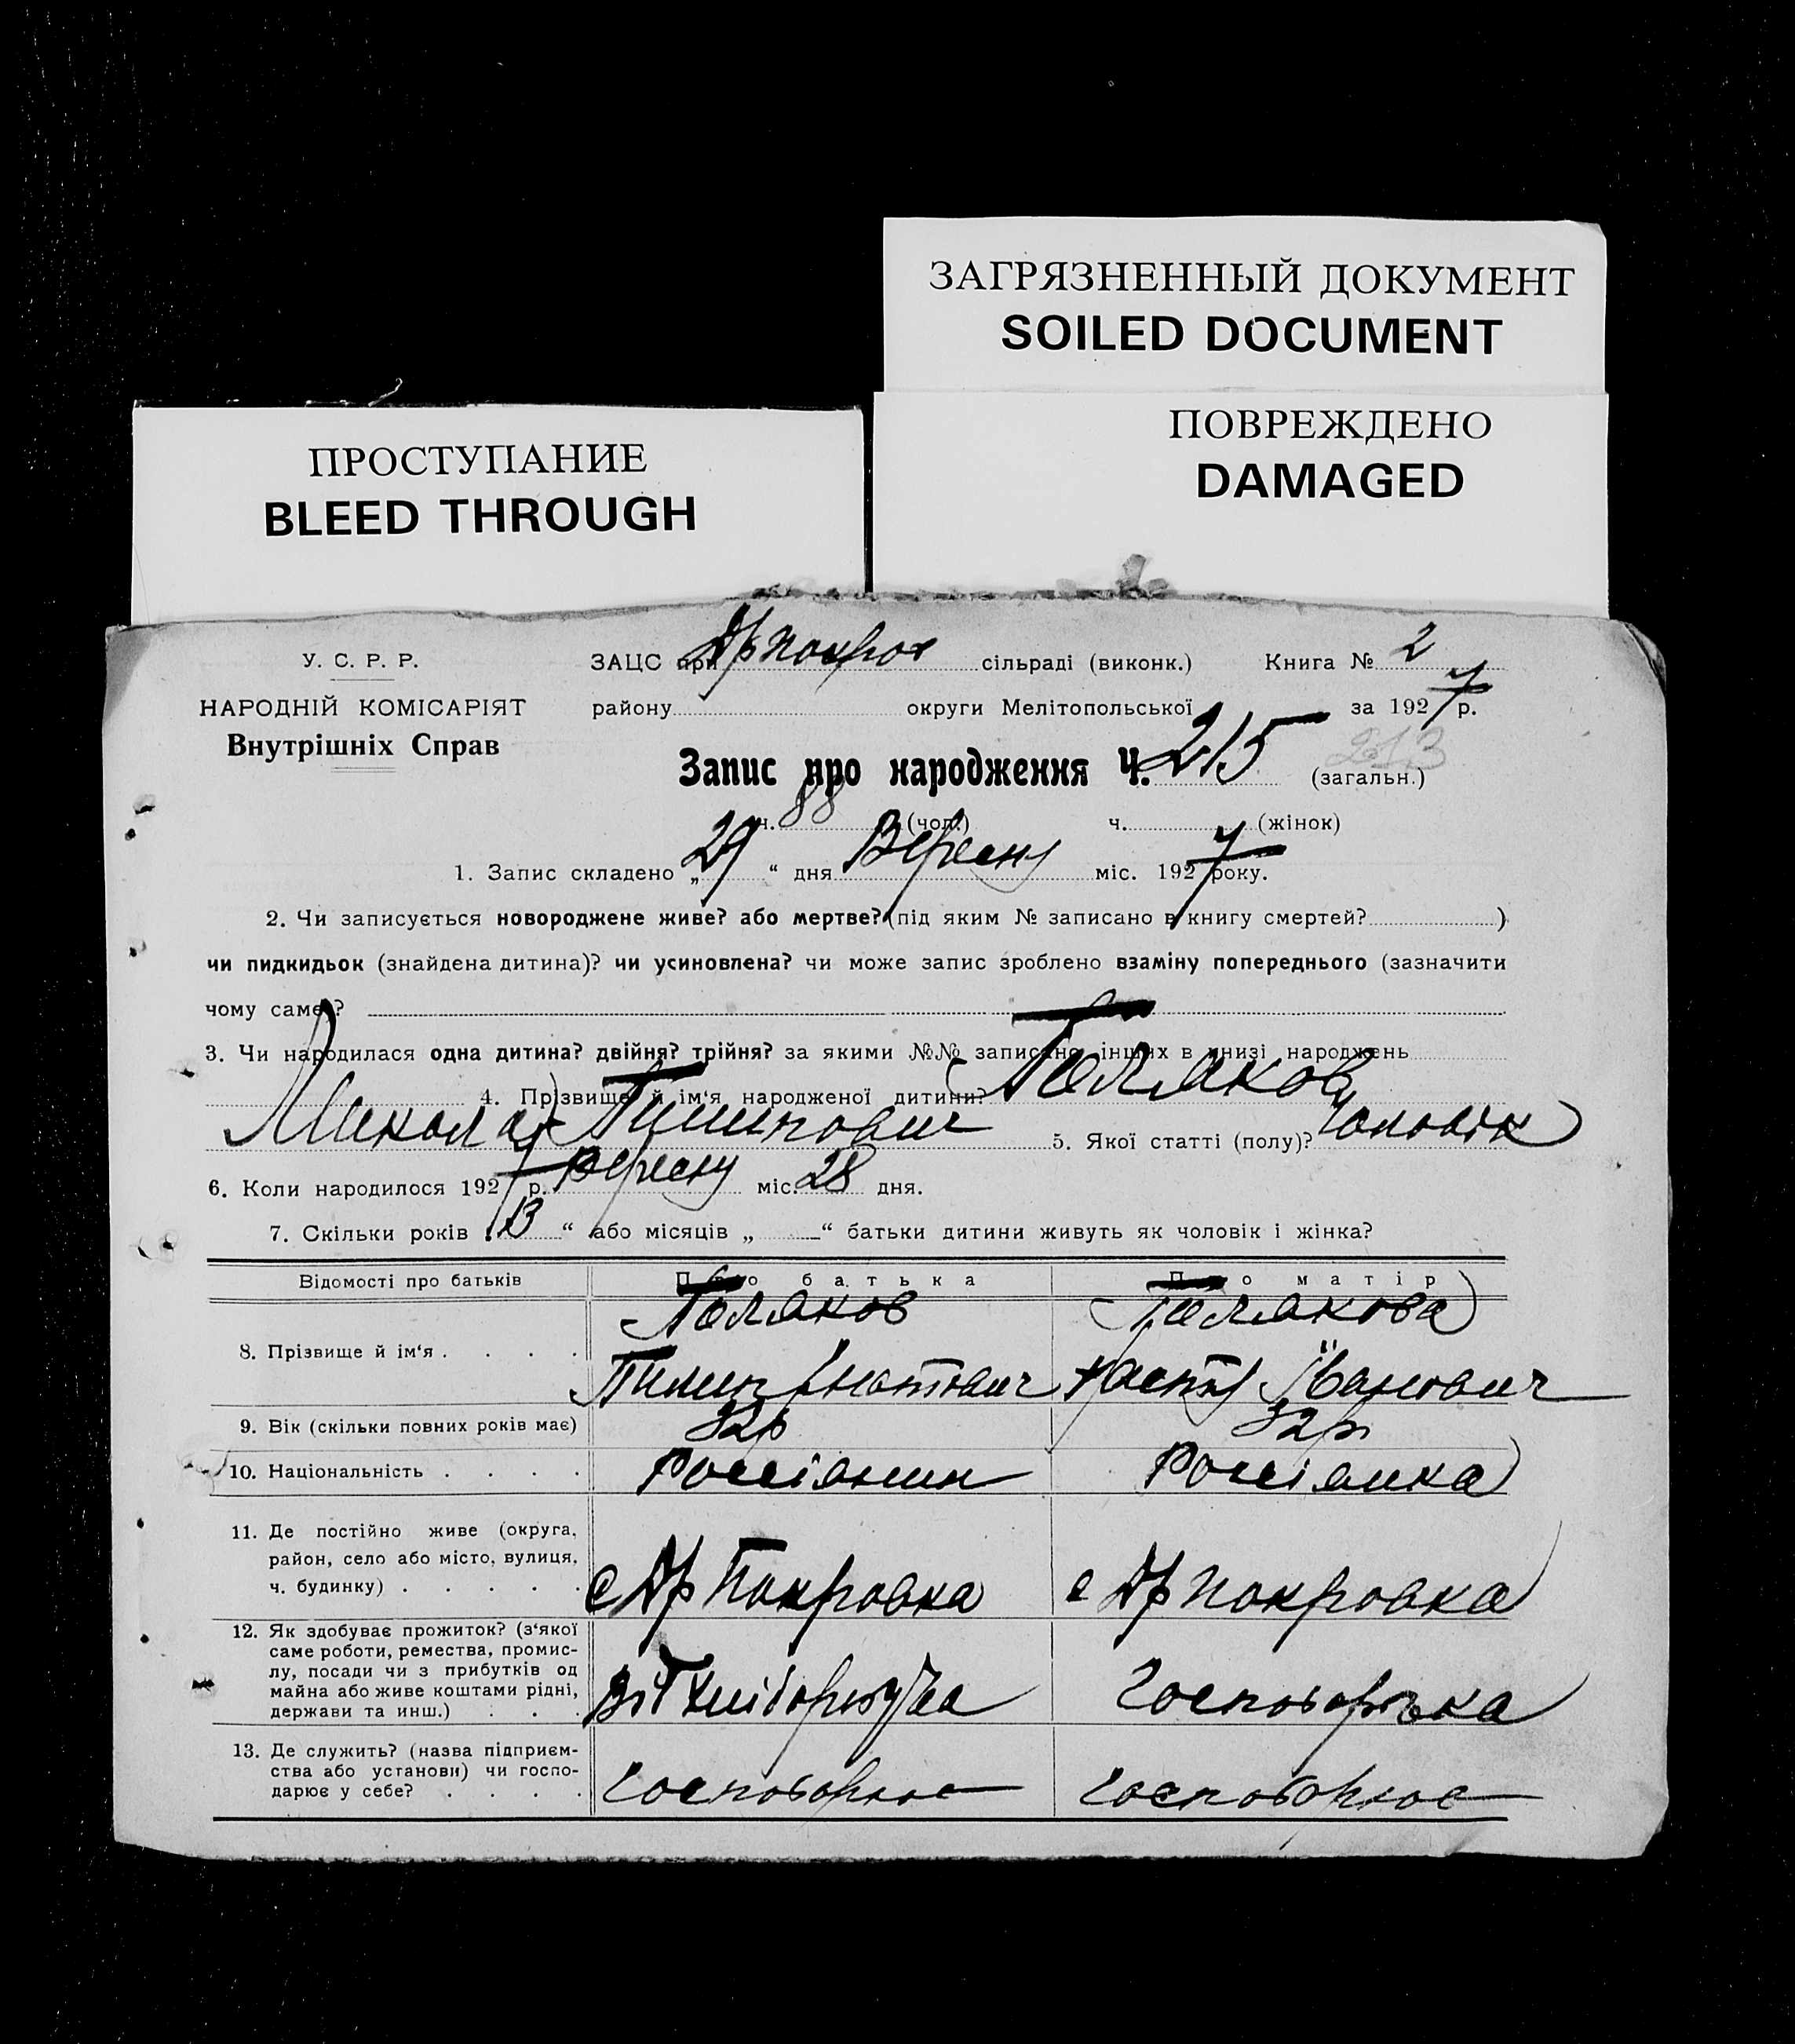 ЗАГРЯЗНЕННЫЙ ДОКУМЕНТ
SOILED DOCUMENT
ПОВРЕЖДЕНО
DAMAGED
ПРОСТУПАНИЕ
BLEED THROUGH
У. С. Р. Р.
НАРОДНІЙ КОМІСАРІЯТ
Внутрішніх Справ
ЗАЦС при Др Покров сільраді (виконк.) Книга № 2
району округи Мелітопольської за 1927 р.
Запис про народження Ч. 215 213 (загальн.)
ч. 88 (чол.) ч. (жінок)
1. Запис складено „29“ дня Вересня міс. 1927 року.
2. Чи записується новороджене живе? або мертве? (під яким № записано в книгу смертей? )
чи пидкидьок (знайдена дитина)? чи усиновлена? чи може запис зроблено взаміну попереднього (зазначити
чому саме)?
3. Чи народилася одна дитина? двійня? трійня? за якими №№ записано інших в книзі народжень
4. Прізвище й ім‘я народженої дитини? Поляков
Микола Пилипович 5. Якої статті (полу)? Чоловік
6. Коли народилося 1927 р. Вересня міс. 28 дня.
7. Скільки років „13“ або місяців „ “ батьки дитини живуть як чоловік і жінка?
Відомості про батьків Про батька Про матір
8. Прізвище й ім‘я . . . . Поляков Полякова
Пилип Ігнатович Настя Іванович
9. Вік (скільки повних років має) 32р 32р.
10. Національність . . . . Россіянин Россіянка
11. Де постійно живе (округа, район, село або місто, вулиця, ч. будинку) . . . . .
с Др Покровка с Др Покровка
12. Як здобуває прожиток? (з‘якої саме роботи, ремества, промислу, посади чи з прибутків од майна або живе коштами рідні, держави та инш.) . . .
Господарька
13. Де служить? (назва підприємства або установи) чи господарює у себе? . . . .
Господарює Господарює